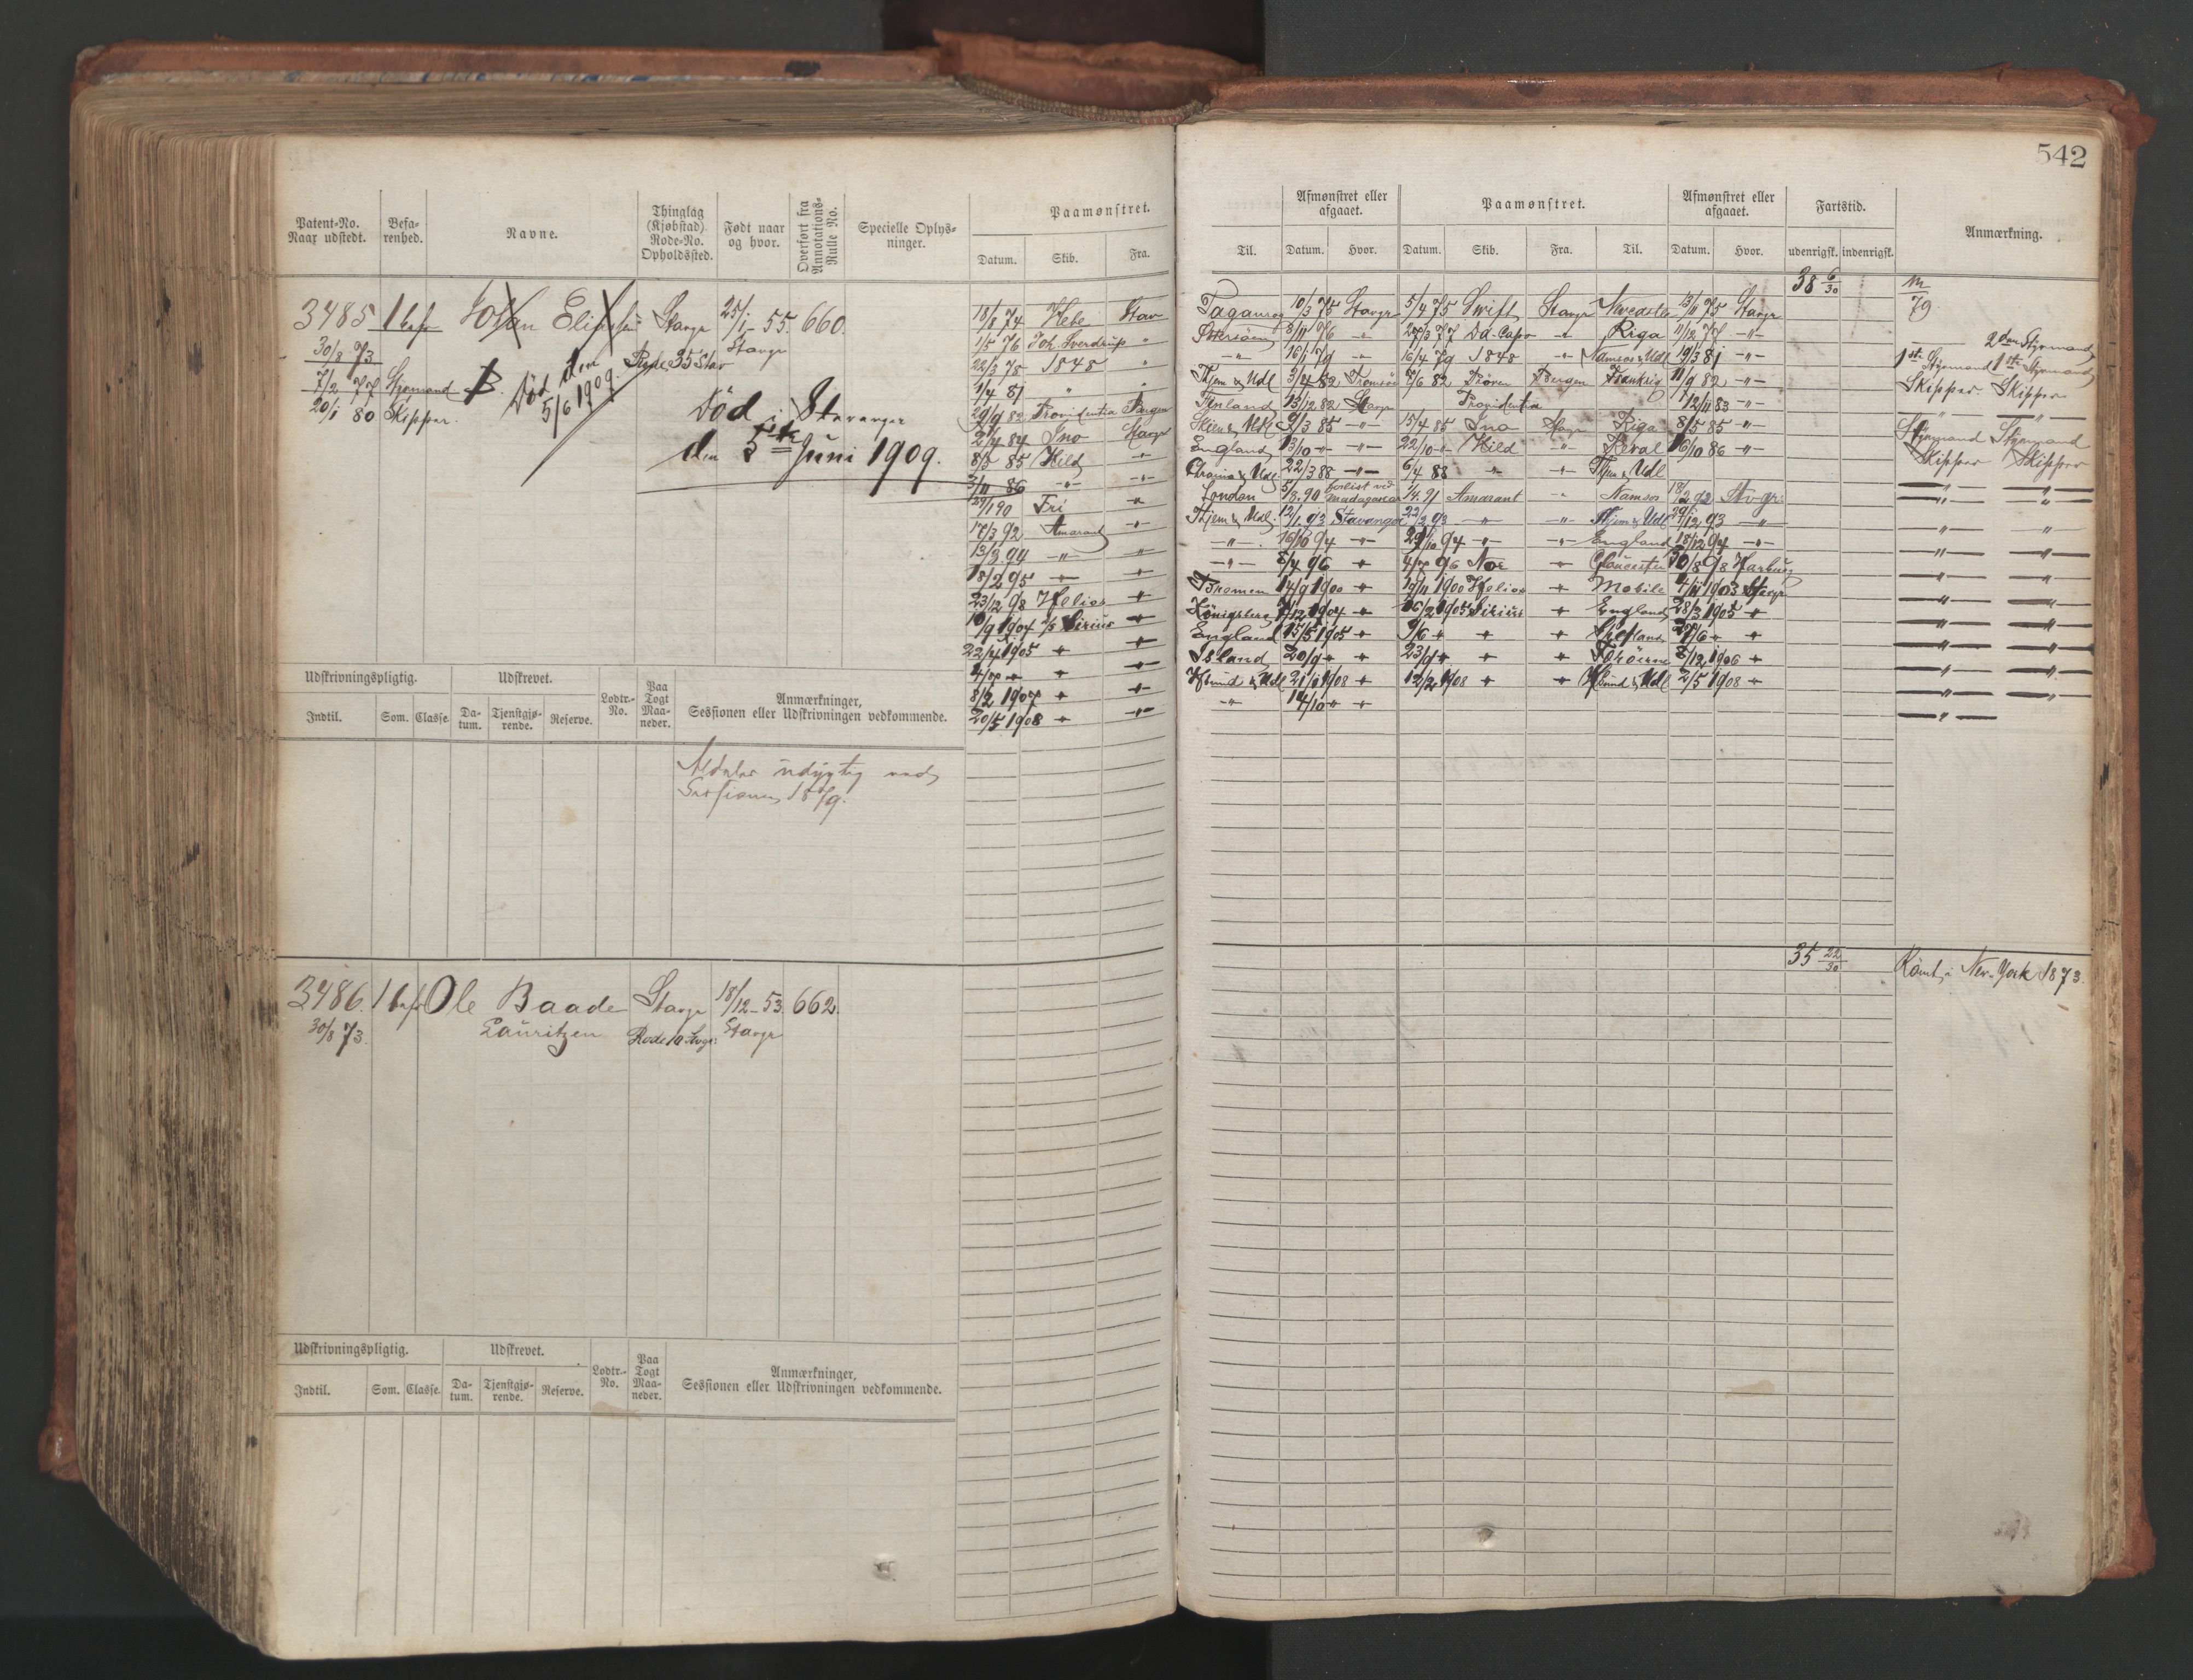 542
Patent-No. Naar udstedt.
Befa-renhed.
Navne.
Thinglag (Kjøbstad) Rode-No. Opholdssted.
Født naar og hvor.
Overført fra Annotations-Rulle No.
Specielle Oplys-ninger.
Paamønstret.
Datum. Skib. Fra.
Til.
Afmønstret eller afgaaet.
Datum. Hvor.
Paamønstret.
Datum. Skib. Fra. Til.
Afmønstret eller afgaaet.
Datum. Hvor.
Fartstid.
udenrigsk. indenrigsk.
Anmærkning.
3485 1 Stavgr 25/1-55. 660.
30/8 73 Stavgr
7/2 77 Styrmand Rode 35 Stav
20/1 80 Skipper.
Død den
5/6 1909.
Død i Stavanger
den 5te Juni 1909.
18/8 74 Hebe Stav
1/5 76 Joh. Sverdrup "
22/3 78 1848 "
1/4 81 " "
29/9 82 Providentia Bergen
2/4 84 Ino Stavgr
8/5 85 Hild -"-
3/11 86 -"- -"-
29/1 90 Fri "
17/3 92 Amarant -"-
13/3 94 -"- "
18/2 95 -"- "
23/12 98 Helios "
10/9 1904 Sirius "
22/4 1905 " "
4/7 " " "
8/2 1907 " "
20/5 1908 " -"-
38 6/30
Taganrog 10/3 75 Stavgr 5/4 75 Swift Stavgr Newcastle 13/11 75 Stavgr
Østersøen 8/11 76 " 27/3 77 Da-Capo " Riga 11/12 77 -"-
-"- 16/1 79 " 16/4 79 1848 -"- Namsos & Udl 19/3 81 -"-
Hjem & Udl 3/4 82 Tromsø 5/6 82 Bergen Frankrig 11/9 82 -"-
13/12 82 Stavgr Providentia 12/11 83 -"-
Hjem & Udl 9/3 85 -"- 15/4 85 Ino Stavgr Riga 8/5 85 -"-
England 13/10 -"- -"- 22/10 " Hild -"- Reval 16/10 86 -"-
22/3 88 -"- 6/4 88 " -"- Hjem & Udl
London 5/8 90 forlist ved Madagascar 1/4 91 Amarant -"- Namsos 18/2 92 Stvgr:
Hjem & Udl. 12/1 93 Stavanger 22/2 93 -"- -"- Hjem & Udl 29/12 93 -"-
-"- 16/10 94 -"- 29/10 94 -"- -"- England 18/12 94 -"-
-"- 8/4 96 " 4/7 96 Noe " Gloucester 30/8 98 Harburg
Bremen 14/9 1900 " 19/11 1900 Helios " Mobile 4/11 1903 Stavgr
Königsberg 7/12 1904 " 16/2 1905 Sirius " England 28/3 1905 "
England 15/5 1905 " 9/6 " " " Shetland 27/6 " "
Island 20/9 " " 23/9 " " " 8/12 1906 "
& Udl 21/1 1908 " 12/2 1908 " " & Udl 2/5 1908 "
-"- 14/10 " "
79
2den Styrmand
1st. Styrmand 1ste Styrmand
Skipper Skipper
-"- -"-
Styrmand Styrmand
Skipper Skipper
Udskrivningspligtig.
Indtil. Som. Classe.
Udskrevet.
Da-tum. Tjenstgjø-rende. Reserve.
Lodtr.-No.
Paa Togt Maa-neder.
Anmærkninger,
Sessionen eller Udskrivningen vedkommende.
udygtig ved
Sessionen 1879.
3486. 1 Ole Baade Stavgr 18/12-53. 662.
30/8 73. Lauritzen Rode 10 Stvgr: Stavgr
35 22/30 Rømt i New-York 1873.
Udskrivningspligtig.
Indtil. Som. Classe.
Udskrevet.
Da-tum. Tjenstgjø-rende. Reserve.
Lodtr.-No.
Paa Togt Maa-neder.
Anmærkninger,
Sessionen eller Udskrivningen vedkommende.